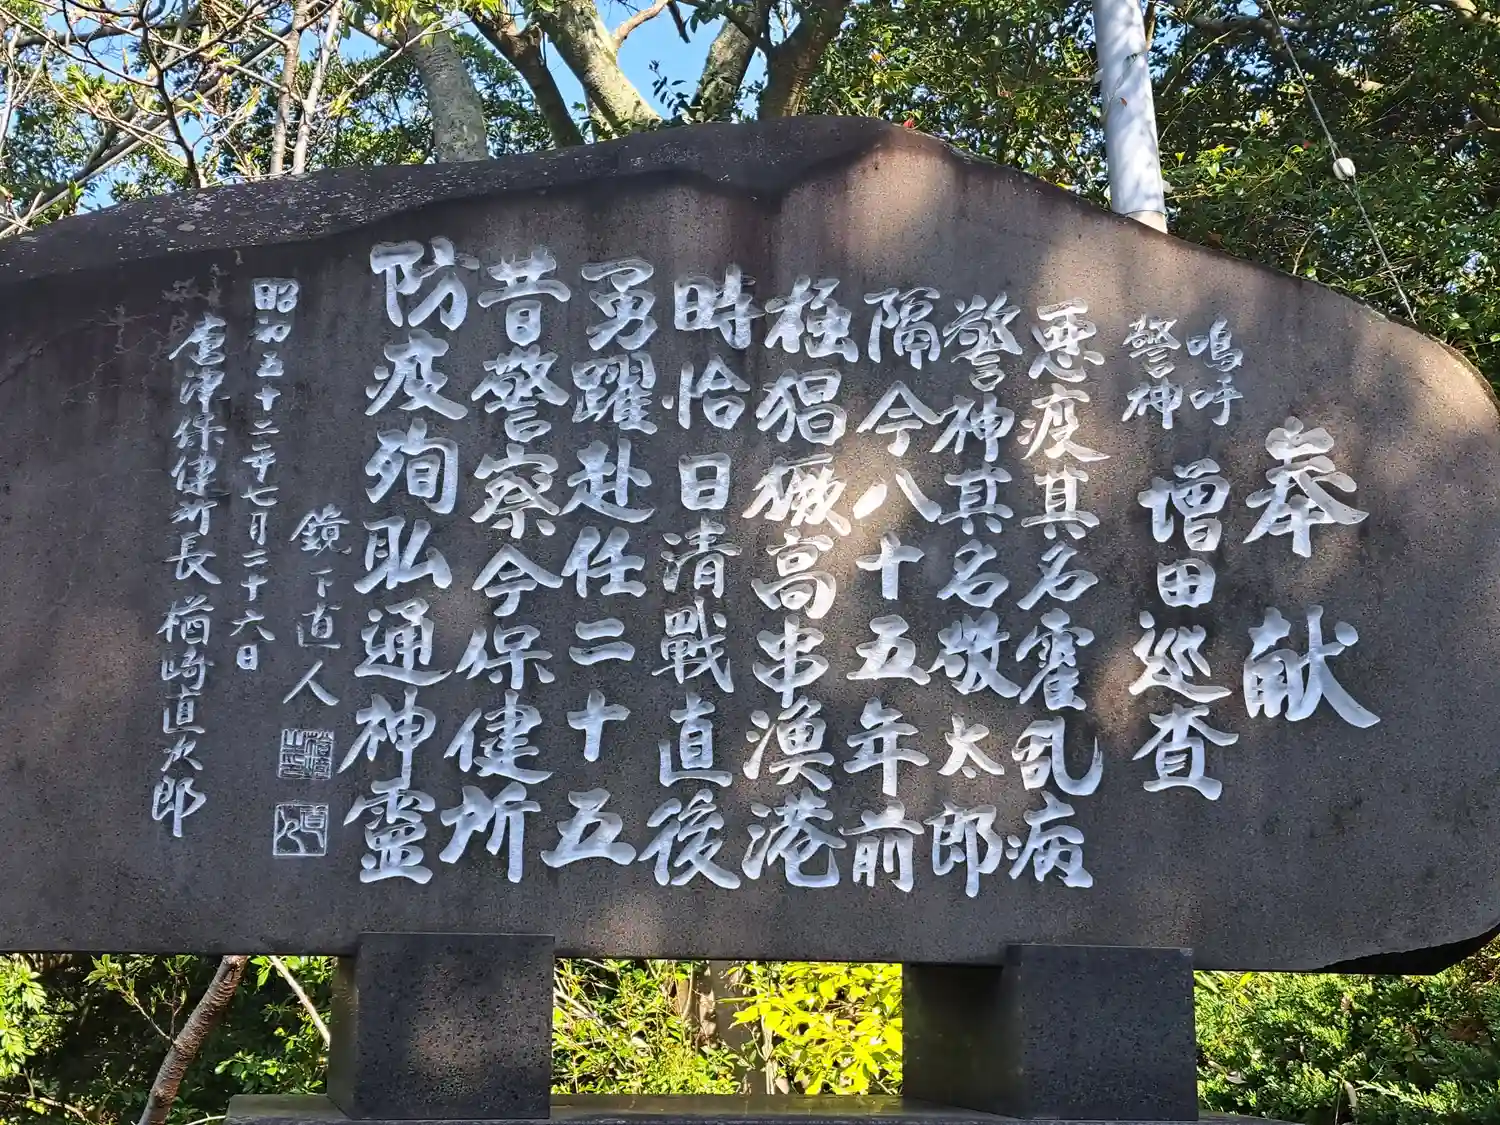 奉献
嗚呼
警神
増田巡査
悪疫其名霍乱病
警神其名敬太郎
隔今八十五年前
極猖獗高串漁港
時恰日清戰直後
勇躍赴任二十五
昔警察今保健所
防疫殉職通神霊
鏡下直人
昭和五十二年七月二十六日
唐津保健所長楢崎直次郎